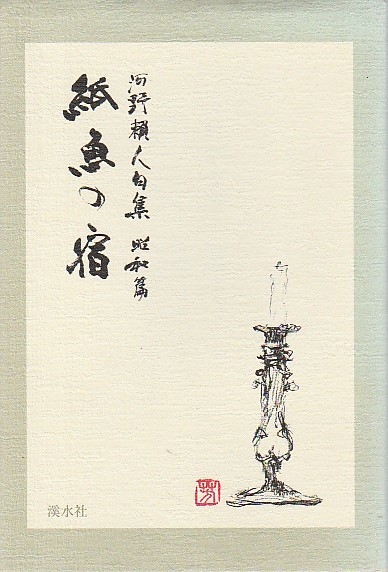 河野頼人句集 昭和篇
紙魚の宿
芳
溪水社